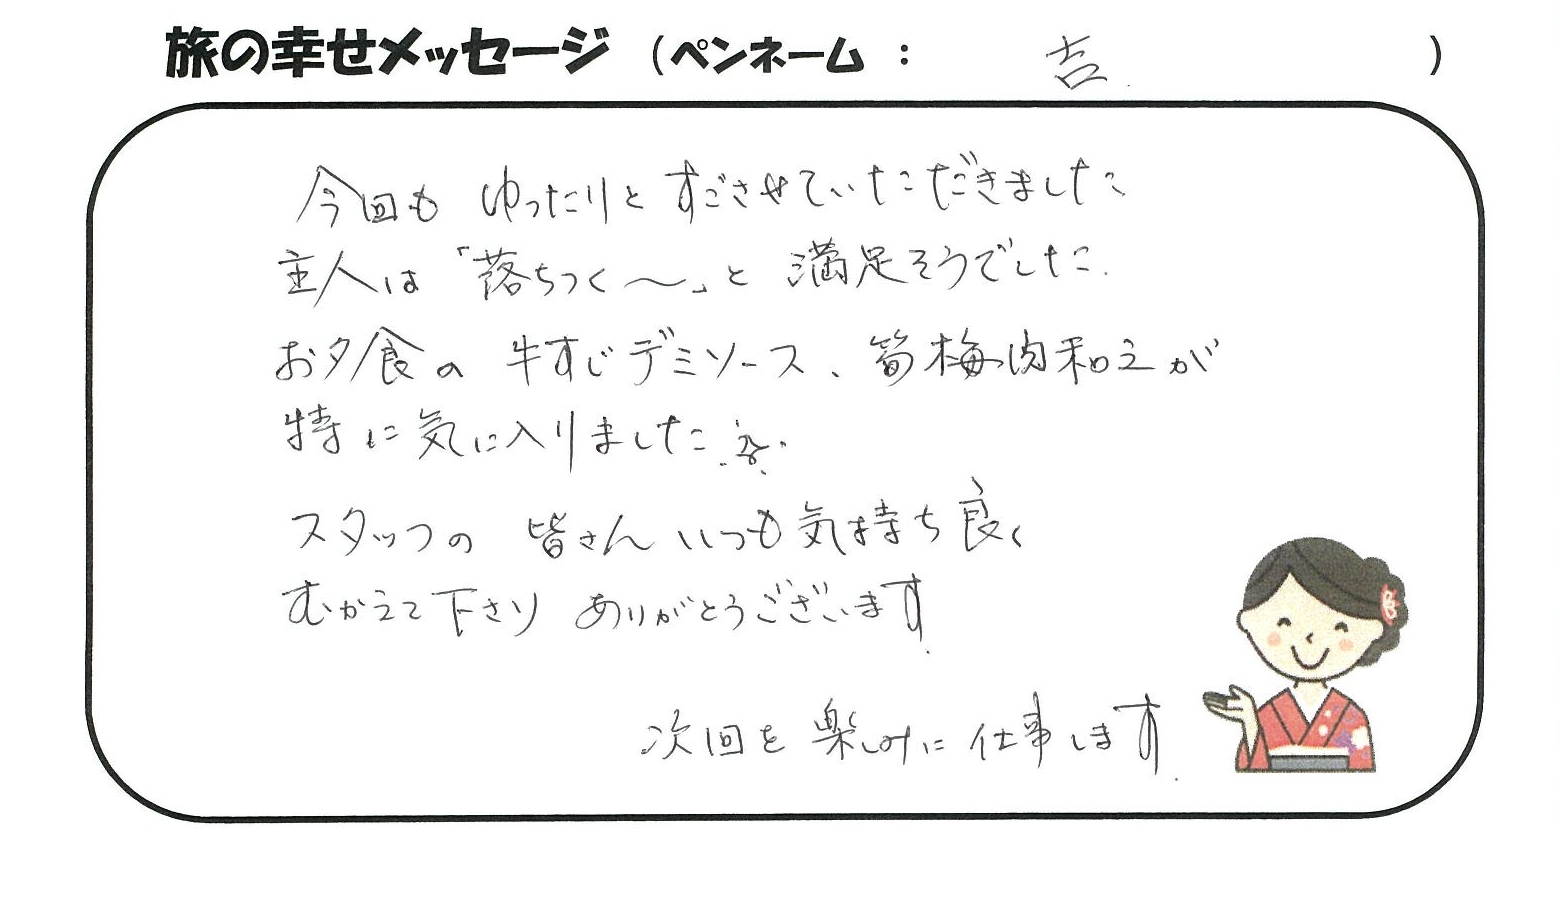 旅の幸せメッセージ （ペンネーム ： 吉 ）
今回も ゆったりと すごさせていただきました
主人は 「落ちつく〜」と 満足そうでした.
お夕食の 牛すじデミソース、筍梅肉和えが
特に気に入りました
スタッフの 皆さん いつも気持ち良く
むかえて下さり ありがとうございます.
次回を楽しみに 仕事します.